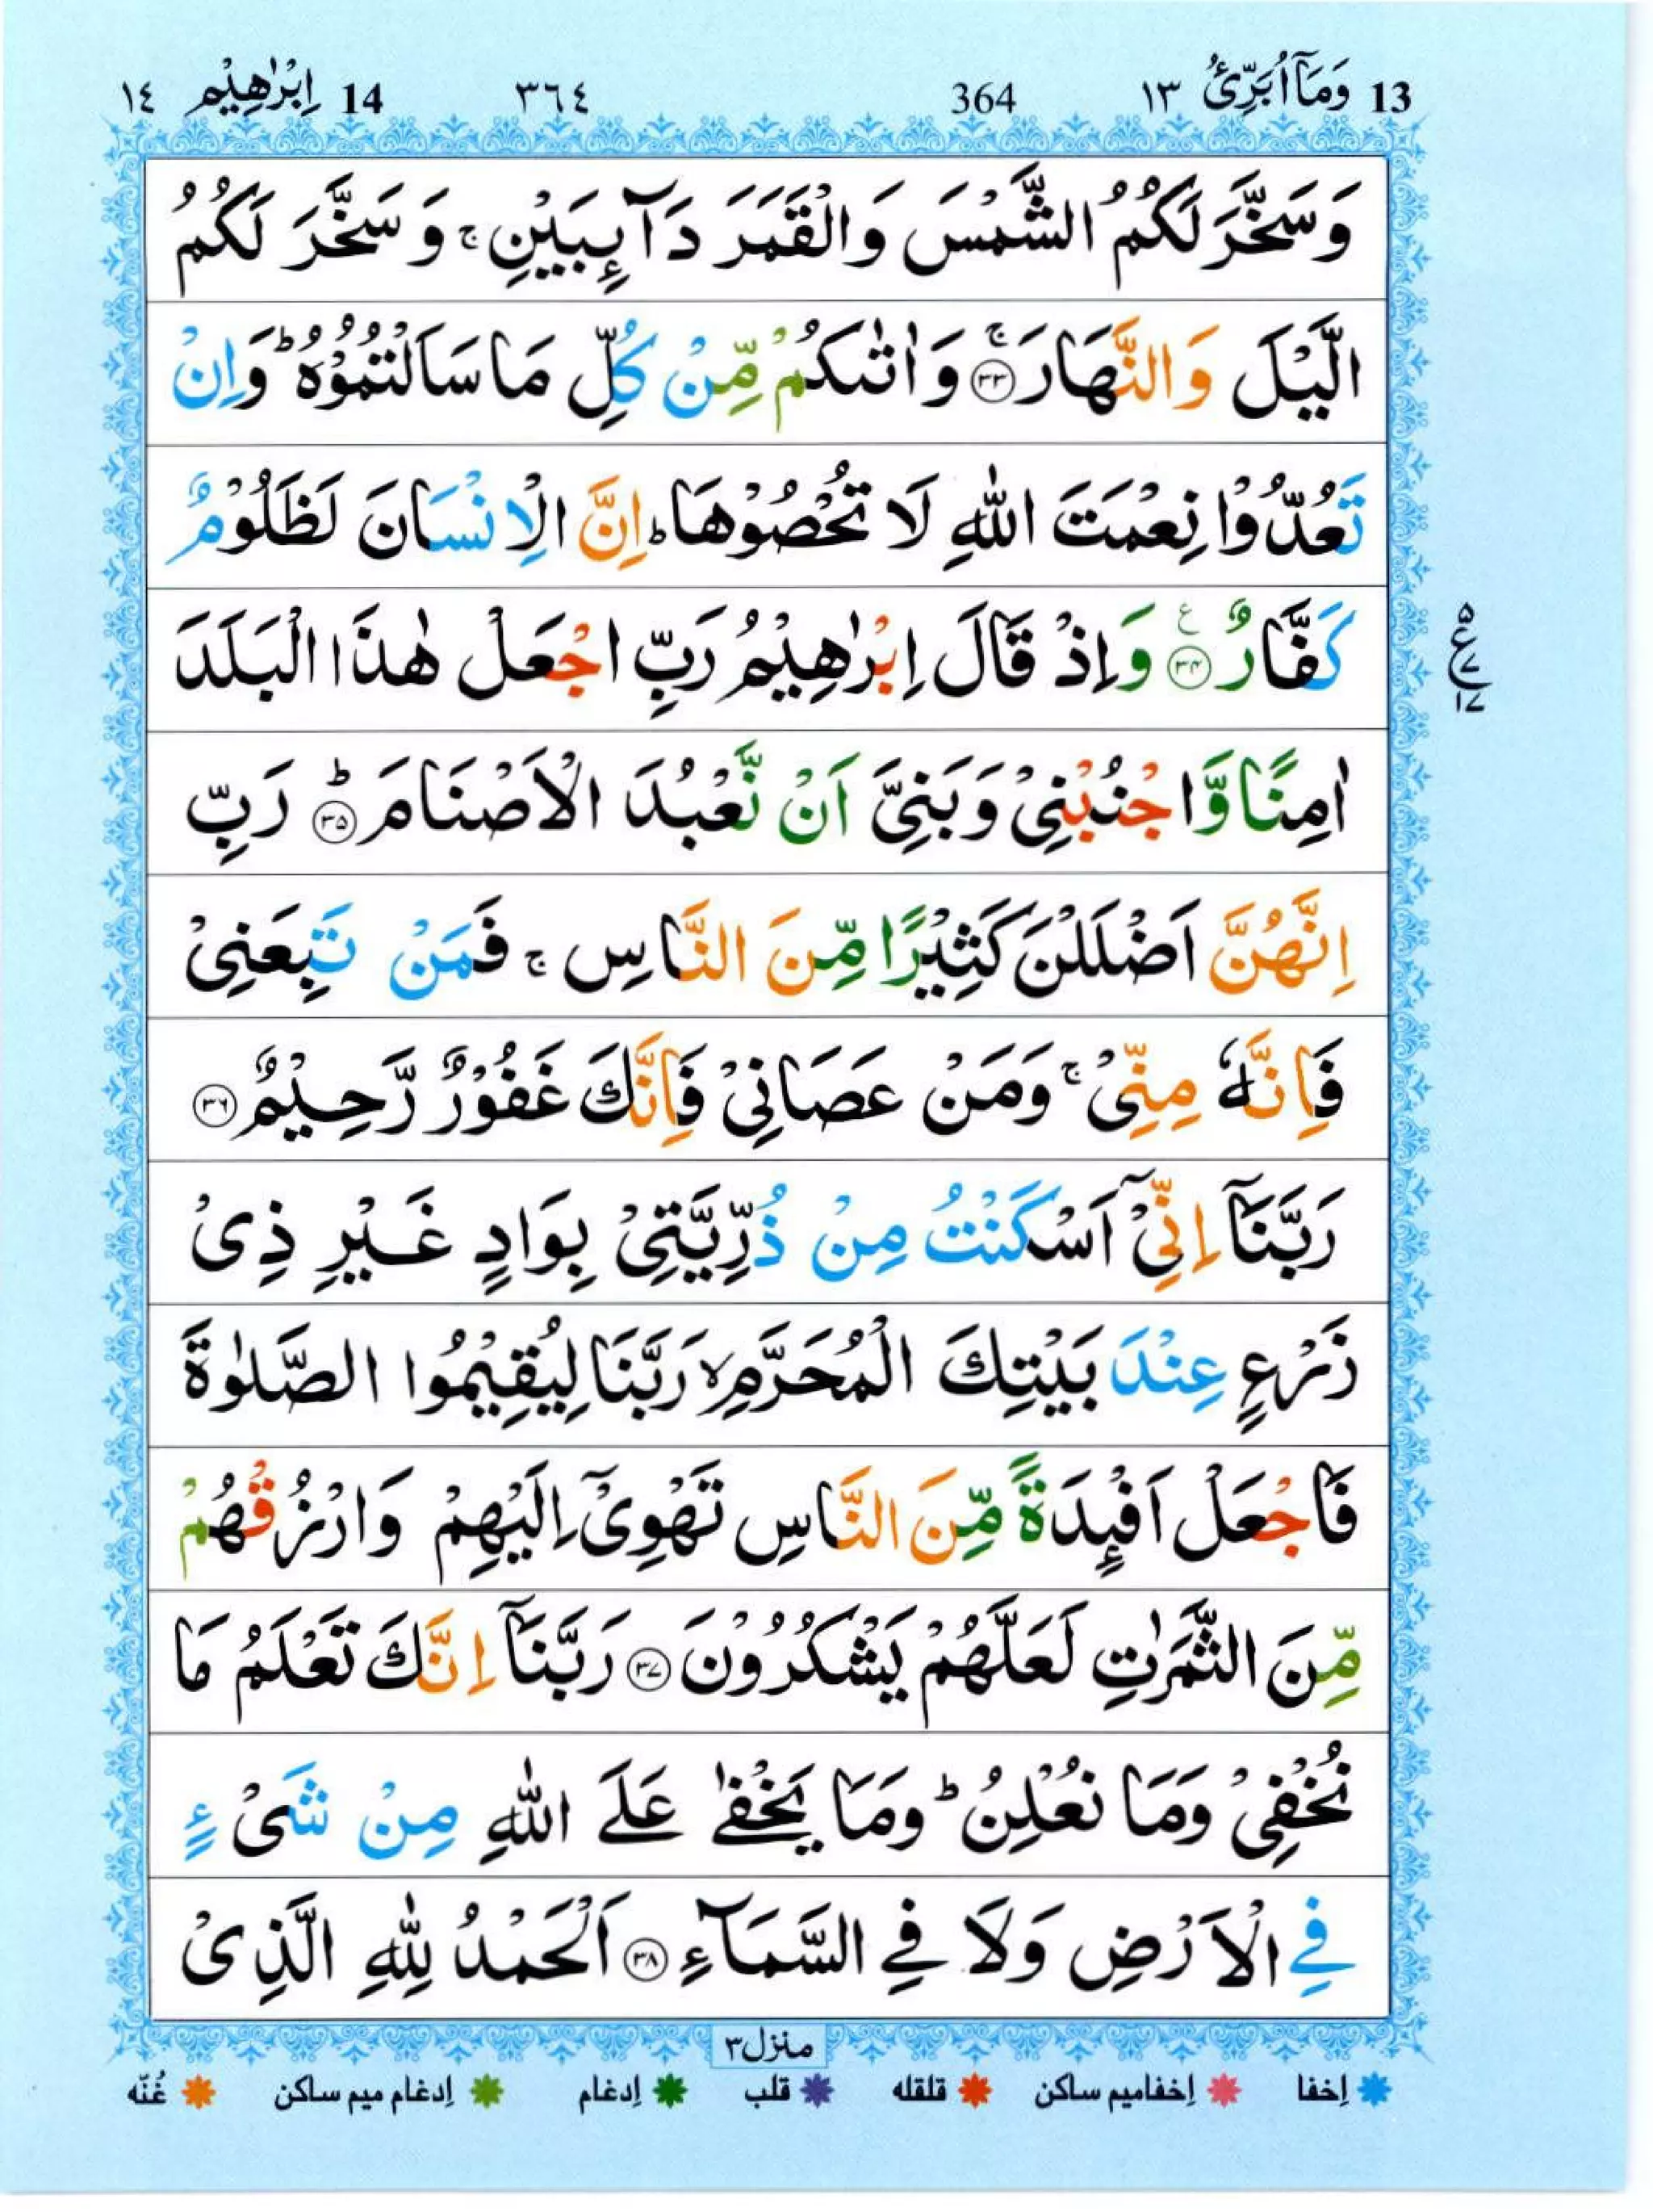 13 وَمَآ اُبَرِّئُ ١٣ 364 ٣٦٤ 14 اِبْرٰهِيْم ١٤
وَسَخَّرَ لَكُمُ الشَّمْسَ وَالْقَمَرَ دَآئِبَيْنِ ۚ وَسَخَّرَ لَكُمُ
الَّيْلَ وَالنَّهَارَ ۚ ﴿۳۳﴾ وَاٰتٰىكُمْ مِّنْ كُلِّ مَا سَاَلْتُمُوْهُ ؕ وَاِنْ
تَعُدُّوْا نِعْمَتَ اللّٰهِ لَا تُحْصُوْهَا ؕ اِنَّ الْاِنْسَانَ لَظَلُوْمٌ
كَفَّارٌ ﴿۳۴﴾ ع وَاِذْ قَالَ اِبْرٰهِيْمُ رَبِّ اجْعَلْ هٰذَا الْبَلَدَ
۵ ع ۷ ۱۷
اٰمِنًا وَّاجْنُبْنِیْ وَبَنِیَّ اَنْ نَّعْبُدَ الْاَصْنَامَ ؕ ﴿۳۵﴾ رَبِّ
اِنَّهُنَّ اَضْلَلْنَ كَثِيْرًا مِّنَ النَّاسِ ۚ فَمَنْ تَبِعَنِیْ
فَاِنَّهٗ مِنِّیْ ۚ وَمَنْ عَصَانِیْ فَاِنَّكَ غَفُوْرٌ رَّحِيْمٌ ﴿۳۶﴾
رَبَّنَاۤ اِنِّیْۤ اَسْكَنْتُ مِنْ ذُرِّيَّتِیْ بِوَادٍ غَيْرِ ذِیْ
زَرْعٍ عِنْدَ بَيْتِكَ الْمُحَرَّمِ ۙ رَبَّنَا لِيُقِيْمُوا الصَّلٰوةَ
فَاجْعَلْ اَفْئِدَةً مِّنَ النَّاسِ تَهْوِیْۤ اِلَيْهِمْ وَارْزُقْهُمْ
مِّنَ الثَّمَرٰتِ لَعَلَّهُمْ يَشْكُرُوْنَ ﴿۳۷﴾ رَبَّنَاۤ اِنَّكَ تَعْلَمُ مَا
نُخْفِیْ وَمَا نُعْلِنُ ؕ وَمَا يَخْفٰى عَلَى اللّٰهِ مِنْ شَیْءٍ
فِی الْاَرْضِ وَلَا فِی السَّمَآءِ ﴿۳۸﴾ اَلْحَمْدُ لِلّٰهِ الَّذِیْ
منزل۳
اِخفا اِخفامیم ساکن قلقله قلب اِدغام اِدغام میم ساکن غُنّه